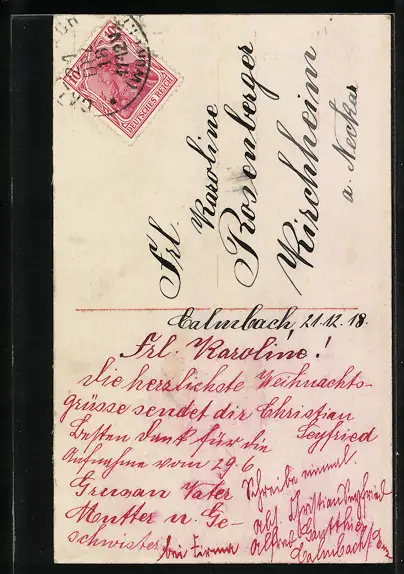 DEUTSCHES REICH
10
Frl.
Karoline
Rosenberger
Kirchheim
a. Neckar
Calmbach, 21.12.18.
Frl. Karoline!
Die herzlichste Weihnachts-
grüsse sendet dir Christian
Seyfried
Besten Dank für die
Aufnahme vom 29.6
Vater
Mutter u. Ge-
schwister
Schreibe einmal.
Abs. Christian Seyfried
bei Firma Alfred
Calmbach